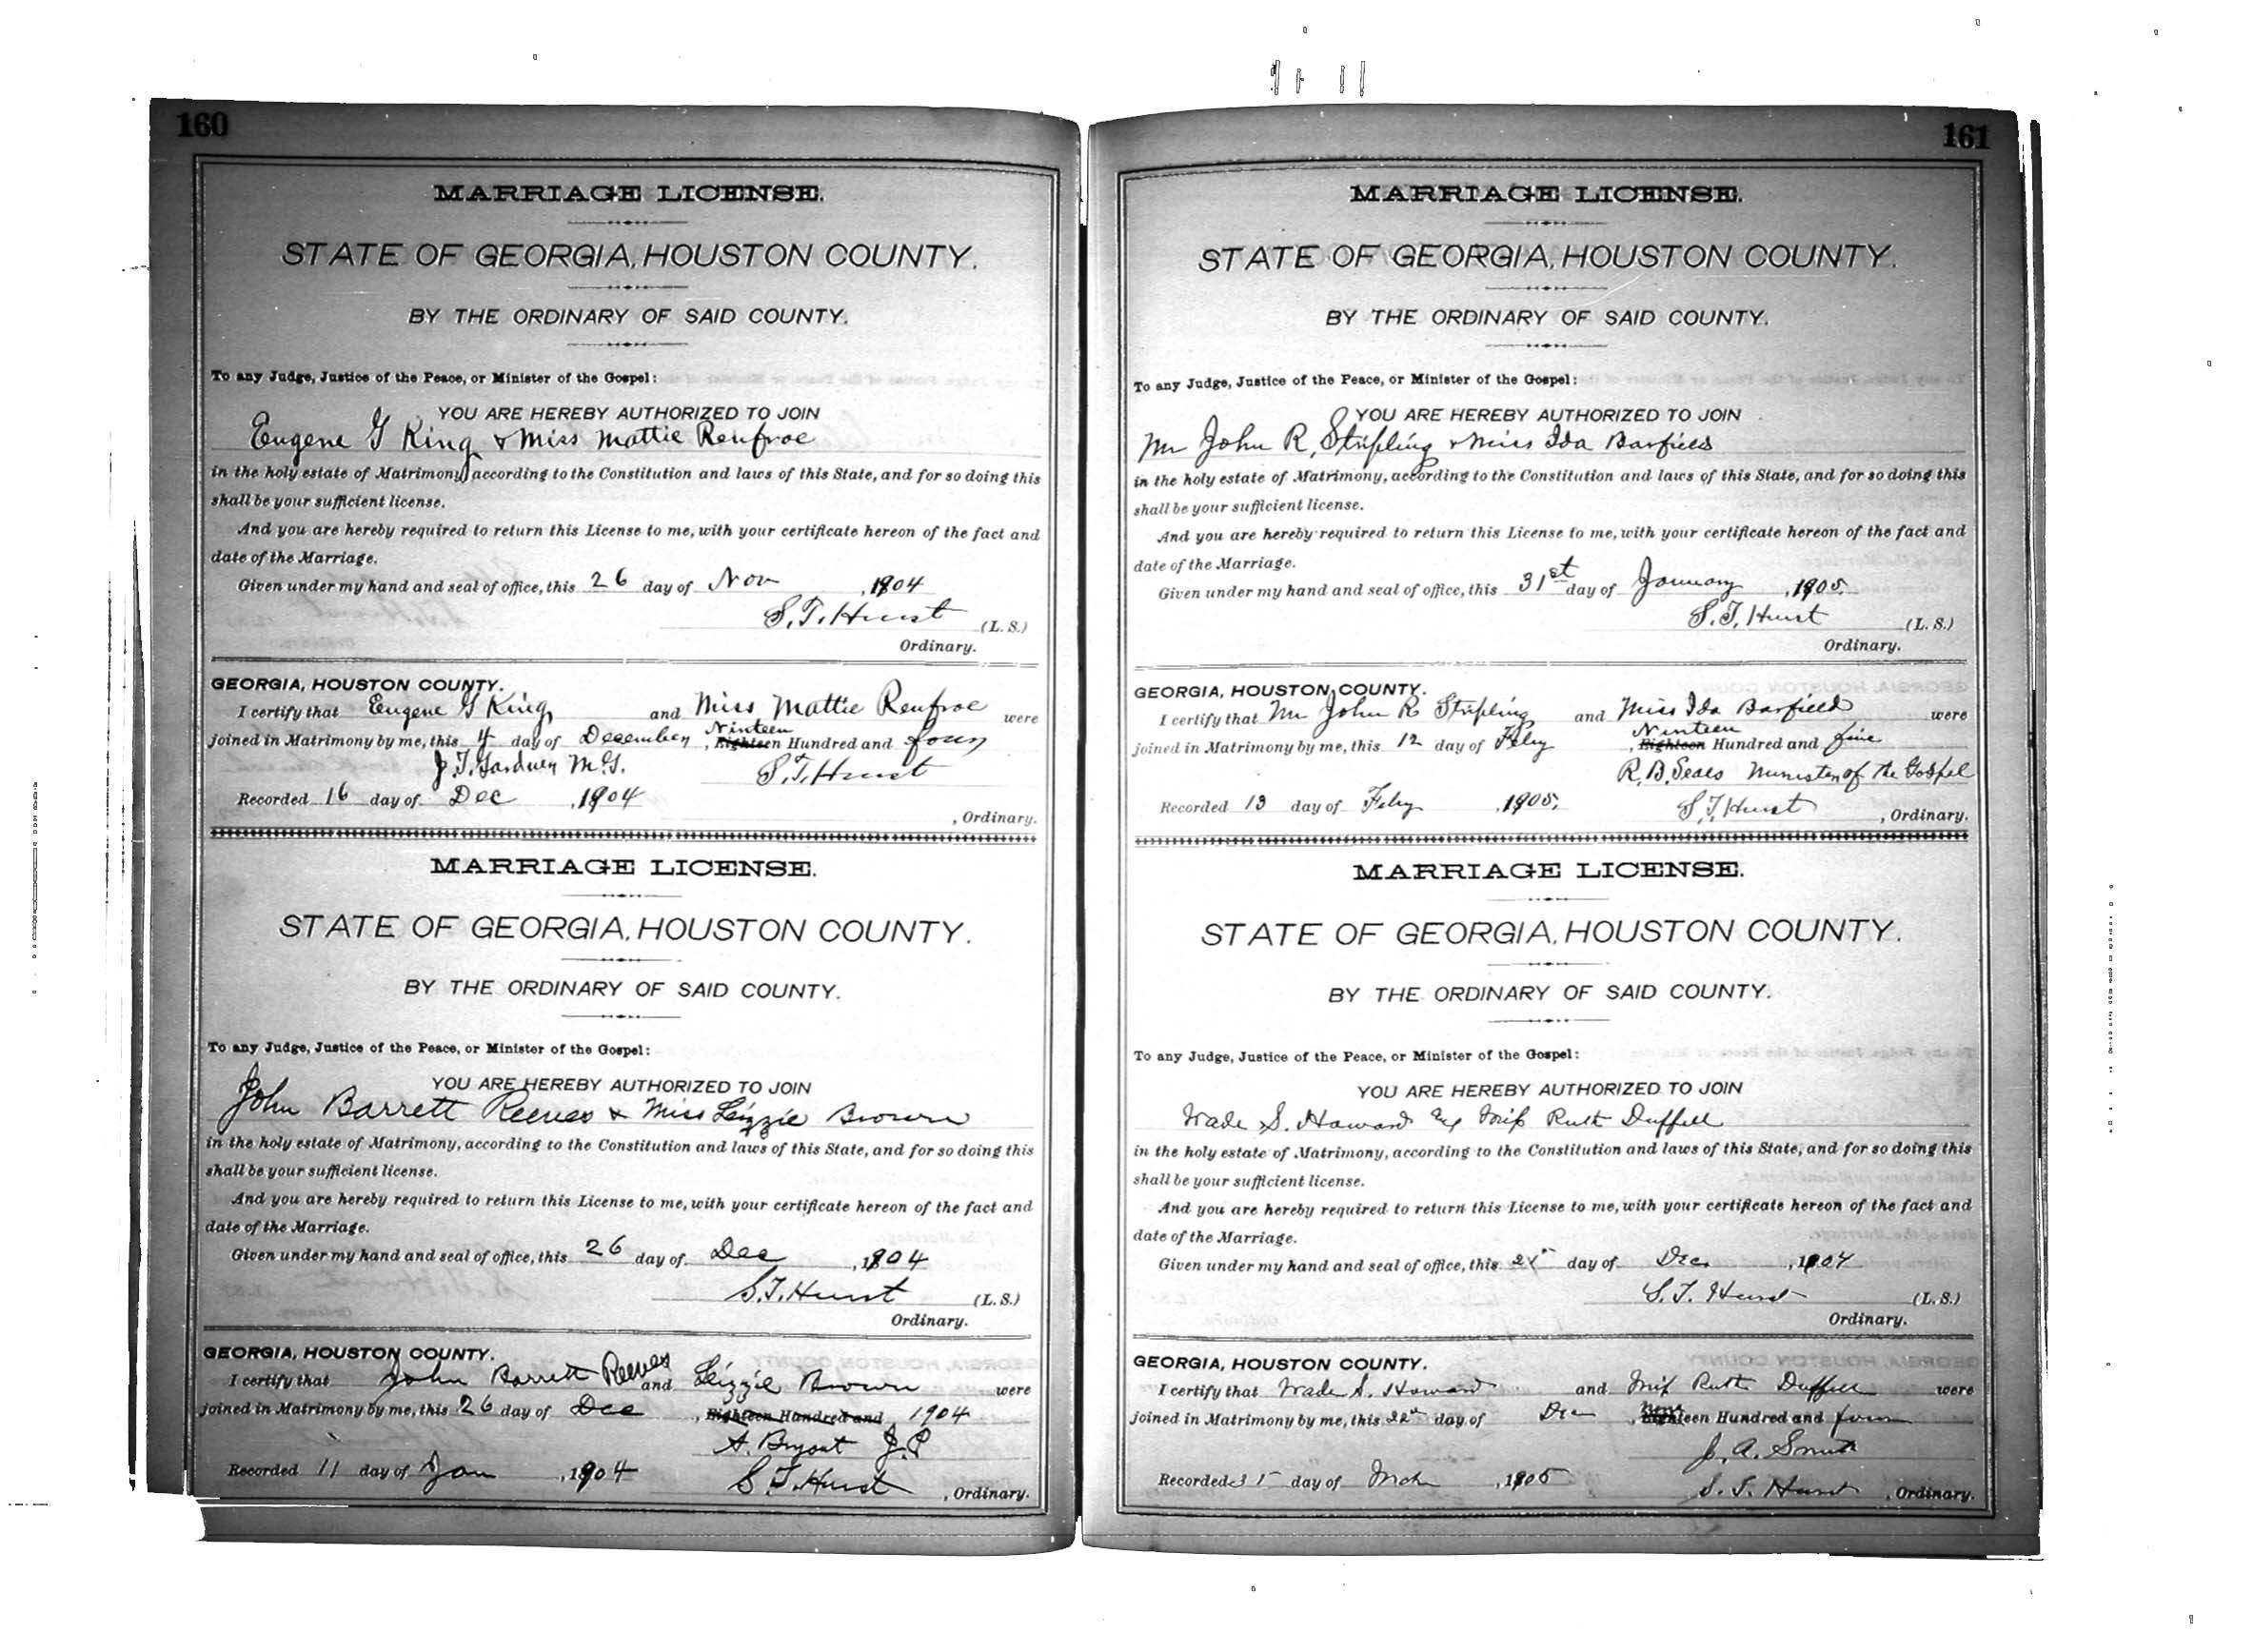 160
MARRIAGE LICENSE.
STATE OF GEORGIA, HOUSTON COUNTY.
BY THE ORDINARY OF SAID COUNTY.
To any Judge, Justice of the Peace, or Minister of the Gospel:
YOU ARE HEREBY AUTHORIZED TO JOIN
Eugene G King & Miss Mattie Renfroe
in the holy estate of Matrimony, according to the Constitution and laws of this State, and for so doing this
shall be your sufficient license.
And you are hereby required to return this License to me, with your certificate hereon of the fact and
date of the Marriage.
Given under my hand and seal of office, this 26 day of Nov, 1904
S. T. Hurst (L. S.)
Ordinary.
GEORGIA, HOUSTON COUNTY.
I certify that Eugene G King and Miss Mattie Renfroe were
Ninteen
joined in Matrimony by me, this 4 day of December, Eighteen Hundred and four
J. T. Gardner M. G. S. T. Hurst
Recorded 16 day of Dec, 1904
, Ordinary.
MARRIAGE LICENSE.
STATE OF GEORGIA, HOUSTON COUNTY.
BY THE ORDINARY OF SAID COUNTY.
To any Judge, Justice of the Peace, or Minister of the Gospel:
YOU ARE HEREBY AUTHORIZED TO JOIN
John Barrett Reeves & Miss Lizzie Brown
in the holy estate of Matrimony, according to the Constitution and laws of this State, and for so doing this
shall be your sufficient license.
And you are hereby required to return this License to me, with your certificate hereon of the fact and
date of the Marriage.
Given under my hand and seal of office, this 26 day of Dec, 1904
S. T. Hurst (L. S.)
Ordinary.
GEORGIA, HOUSTON COUNTY.
I certify that John Barrett Reeves and Lizzie Brown were
joined in Matrimony by me, this 26 day of Dec, Eighteen Hundred and 1904
A. Bryant J. P.
Recorded 11 day of Jan, 1904 S. T. Hurst, Ordinary.
161
MARRIAGE LICENSE.
STATE OF GEORGIA, HOUSTON COUNTY.
BY THE ORDINARY OF SAID COUNTY.
To any Judge, Justice of the Peace, or Minister of the Gospel:
YOU ARE HEREBY AUTHORIZED TO JOIN
Mr John R. Stripling & Miss Ida Barfield
in the holy estate of Matrimony, according to the Constitution and laws of this State, and for so doing this
shall be your sufficient license.
And you are hereby required to return this License to me, with your certificate hereon of the fact and
date of the Marriage.
Given under my hand and seal of office, this 31st day of January, 1905.
S. T. Hurst (L. S.)
Ordinary.
GEORGIA, HOUSTON COUNTY.
I certify that Mr John R Stripling and Miss Ida Barfield were
Ninteen
joined in Matrimony by me, this 12 day of Feby, Eighteen Hundred and five
R. B. Seals Minister of the Gospel
Recorded 13 day of Feby, 1905. S. T. Hurst, Ordinary.
MARRIAGE LICENSE.
STATE OF GEORGIA, HOUSTON COUNTY.
BY THE ORDINARY OF SAID COUNTY.
To any Judge, Justice of the Peace, or Minister of the Gospel:
YOU ARE HEREBY AUTHORIZED TO JOIN
Wade S. Howard & Miss Ruth Duffell
in the holy estate of Matrimony, according to the Constitution and laws of this State, and for so doing this
shall be your sufficient license.
And you are hereby required to return this License to me, with your certificate hereon of the fact and
date of the Marriage.
Given under my hand and seal of office, this day of Dec, 1904
S. T. Hurst (L. S.)
Ordinary.
GEORGIA, HOUSTON COUNTY.
I certify that Wade S. Howard and Miss Ruth Duffell were
joined in Matrimony by me, this 22nd day of Dec, Nineteen Hundred and four
J. A. Smith
Recorded day of Mch, 1905 S. T. Hurst, Ordinary.